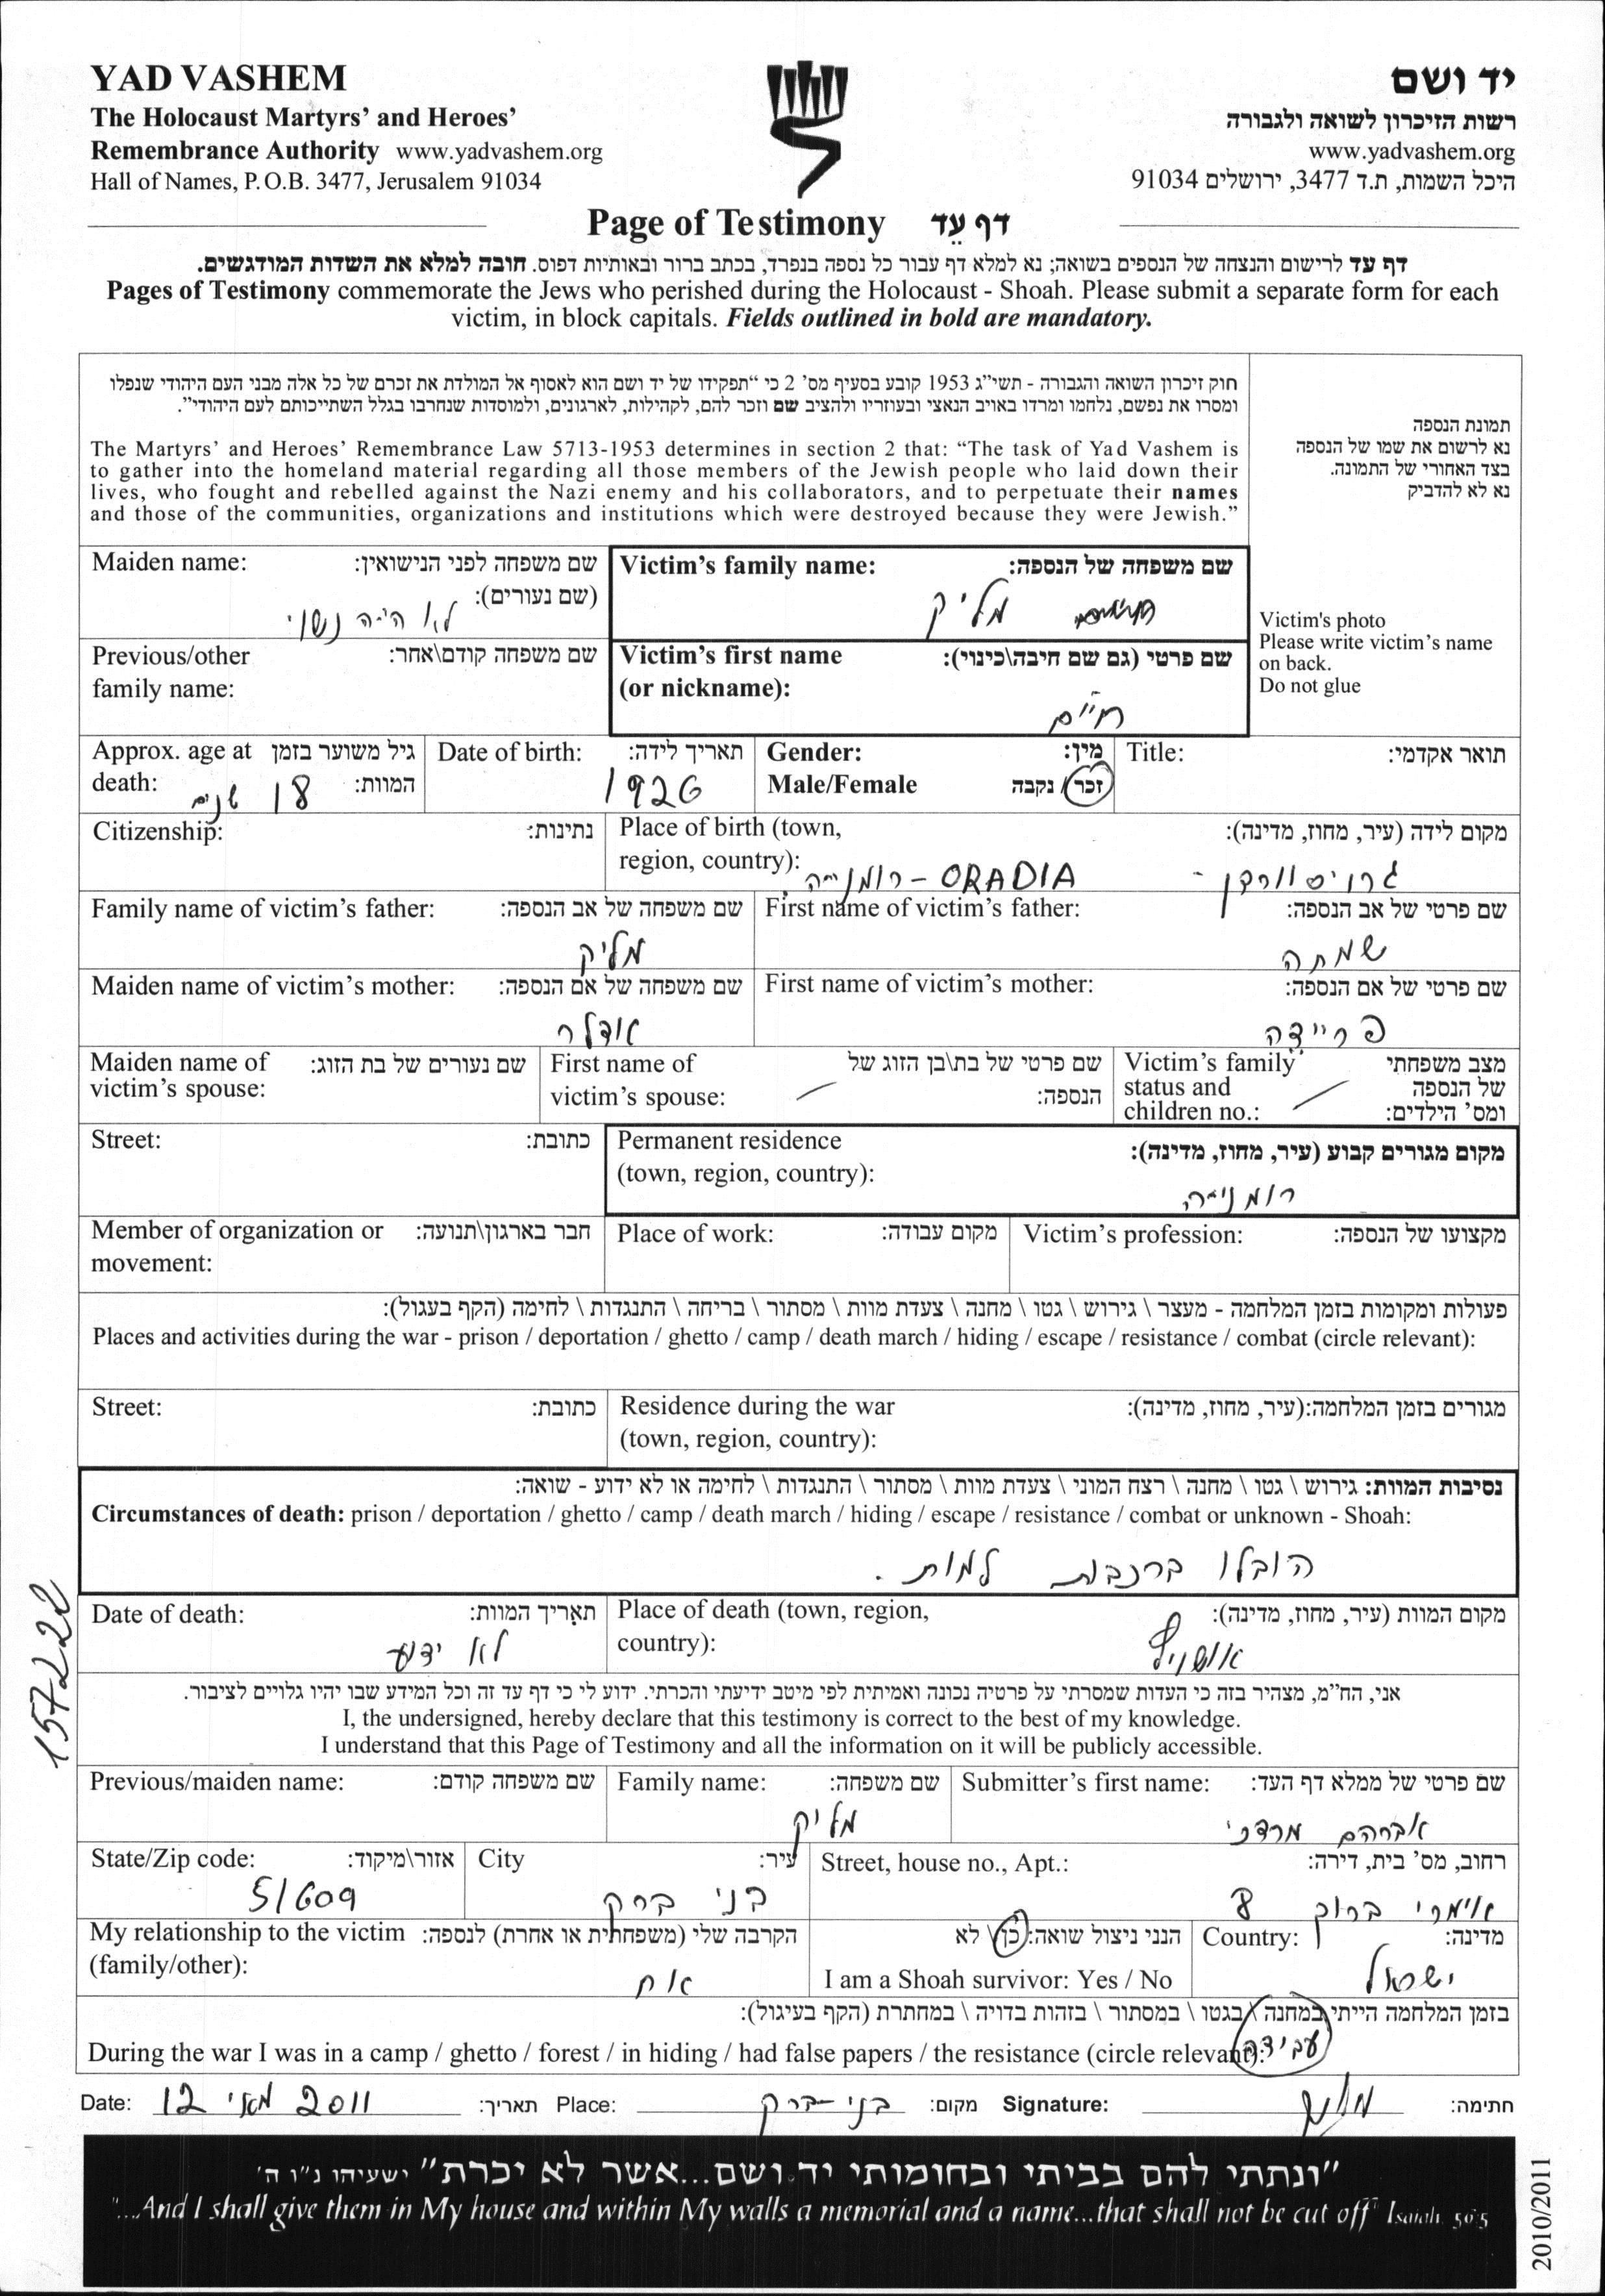 YAD VASHEM
The Holocaust Martyrs' and Heroes'
Remembrance Authority www.yadvashem.org
Hall of Names, P.O.B. 3477, Jerusalem 91034
יד ושם
רשות הזיכרון לשואה ולגבורה
www.yadvashem.org
היכל השמות, ת.ד 3477, ירושלים 91034
Page of Testimony דף עֵד
דף עֵד לרישום והנצחה של הנספים בשואה; נא למלא דף עבור כל נספה בנפרד, בכתב ברור ובאותיות דפוס. חובה למלא את השדות המודגשים.
Pages of Testimony commemorate the Jews who perished during the Holocaust - Shoah. Please submit a separate form for each
victim, in block capitals. Fields outlined in bold are mandatory.
חוק זיכרון השואה והגבורה - תשי"ג 1953 קובע בסעיף מס' 2 כי "תפקידו של יד ושם הוא לאסוף אל המולדת את זכרם של כל אלה מבני העם היהודי שנפלו
ומסרו את נפשם, נלחמו ומרדו באויב הנאצי ובעוזריו ולהציב שם וזכר להם, לקהילות, לארגונים, ולמוסדות שנחרבו בגלל השתייכותם לעם היהודי".
The Martyrs' and Heroes' Remembrance Law 5713-1953 determines in section 2 that: "The task of Yad Vashem is
to gather into the homeland material regarding all those members of the Jewish people who laid down their
lives, who fought and rebelled against the Nazi enemy and his collaborators, and to perpetuate their names
and those of the communities, organizations and institutions which were destroyed because they were Jewish."
תמונת הנספה
נא לרשום את שמו של הנספה
בצד האחורי של התמונה.
נא לא להדביק
Victim's photo
Please write victim's name
on back.
Do not glue
Maiden name: שם משפחה לפני הנישואין:
(שם נעורים):
לא היה נשוי
Victim's family name: שם משפחה של הנספה:
מליק
Previous/other שם משפחה קודם\אחר:
family name:
Victim's first name שם פרטי (גם שם חיבה\כינוי):
(or nickname):
חיים
Approx. age at גיל משוער בזמן
death: המוות:
18 שנים
Date of birth: תאריך לידה:
1926
Gender: מין:
Male/Female זכר / נקבה
Title: תואר אקדמי:
Citizenship: נתינות:
Place of birth (town, מקום לידה (עיר, מחוז, מדינה):
region, country):
גרויסוורדן - ORADIA - רומניה
Family name of victim's father: שם משפחה של אב הנספה:
מליק
First name of victim's father: שם פרטי של אב הנספה:
שמחה
Maiden name of victim's mother: שם משפחה של אם הנספה:
אדלר
First name of victim's mother: שם פרטי של אם הנספה:
פריידה
Maiden name of שם נעורים של בת הזוג:
victim's spouse:
First name of שם פרטי של בת\בן הזוג של
victim's spouse: הנספה:
Victim's family מצב משפחתי
status and של הנספה
children no.: ומס' הילדים:
Street: כתובת:
Permanent residence מקום מגורים קבוע (עיר, מחוז, מדינה):
(town, region, country):
רומניה
Member of organization or חבר בארגון\תנועה:
movement:
Place of work: מקום עבודה:
Victim's profession: מקצועו של הנספה:
פעולות ומקומות בזמן המלחמה - מעצר \ גירוש \ גטו \ מחנה \ צעדת מוות \ מסתור \ בריחה \ התנגדות \ לחימה (הקף בעגול):
Places and activities during the war - prison / deportation / ghetto / camp / death march / hiding / escape / resistance / combat (circle relevant):
Street: כתובת:
Residence during the war מגורים בזמן המלחמה:(עיר, מחוז, מדינה):
(town, region, country):
נסיבות המוות: גירוש \ גטו \ מחנה \ רצח המוני \ צעדת מוות \ מסתור \ התנגדות \ לחימה או לא ידוע - שואה:
Circumstances of death: prison / deportation / ghetto / camp / death march / hiding / escape / resistance / combat or unknown - Shoah:
הובלו ברכבת למוות.
Date of death: תאריך המוות:
לא ידוע
Place of death (town, region, מקום המוות (עיר, מחוז, מדינה):
country):
אושויץ
אני, הח"מ, מצהיר בזה כי העדות שמסרתי על פרטיה נכונה ואמיתית לפי מיטב ידיעתי והכרתי. ידוע לי כי דף עד זה וכל המידע שבו יהיו גלויים לציבור.
I, the undersigned, hereby declare that this testimony is correct to the best of my knowledge.
I understand that this Page of Testimony and all the information on it will be publicly accessible.
Previous/maiden name: שם משפחה קודם:
Family name: שם משפחה:
מליק
Submitter's first name: שם פרטי של ממלא דף העד:
אברהם מרדכי
State/Zip code: אזור\מיקוד:
51609
City עיר:
בני ברק
Street, house no., Apt.: רחוב, מס' בית, דירה:
אימרי ברוך 8
My relationship to the victim הקרבה שלי (משפחתית או אחרת) לנספה:
(family/other):
אח
הנני ניצול שואה: כן \ לא
I am a Shoah survivor: Yes / No
Country: מדינה:
ישראל
בזמן המלחמה הייתי במחנה \ בגטו \ במסתור \ בזהות בדויה \ במחתרת (הקף בעיגול):
עבידה
During the war I was in a camp / ghetto / forest / in hiding / had false papers / the resistance (circle relevant):
Date: 12 מאי 2011 תאריך: Place: בני-ברק מקום: Signature: חתימה:
"ונתתי להם בביתי ובחומותי יד ושם...אשר לא יכרת" ישעיהו נ"ו ה'
"...And I shall give them in My house and within My walls a memorial and a name...that shall not be cut off" Isaiah 56:5
157222
2010/2011